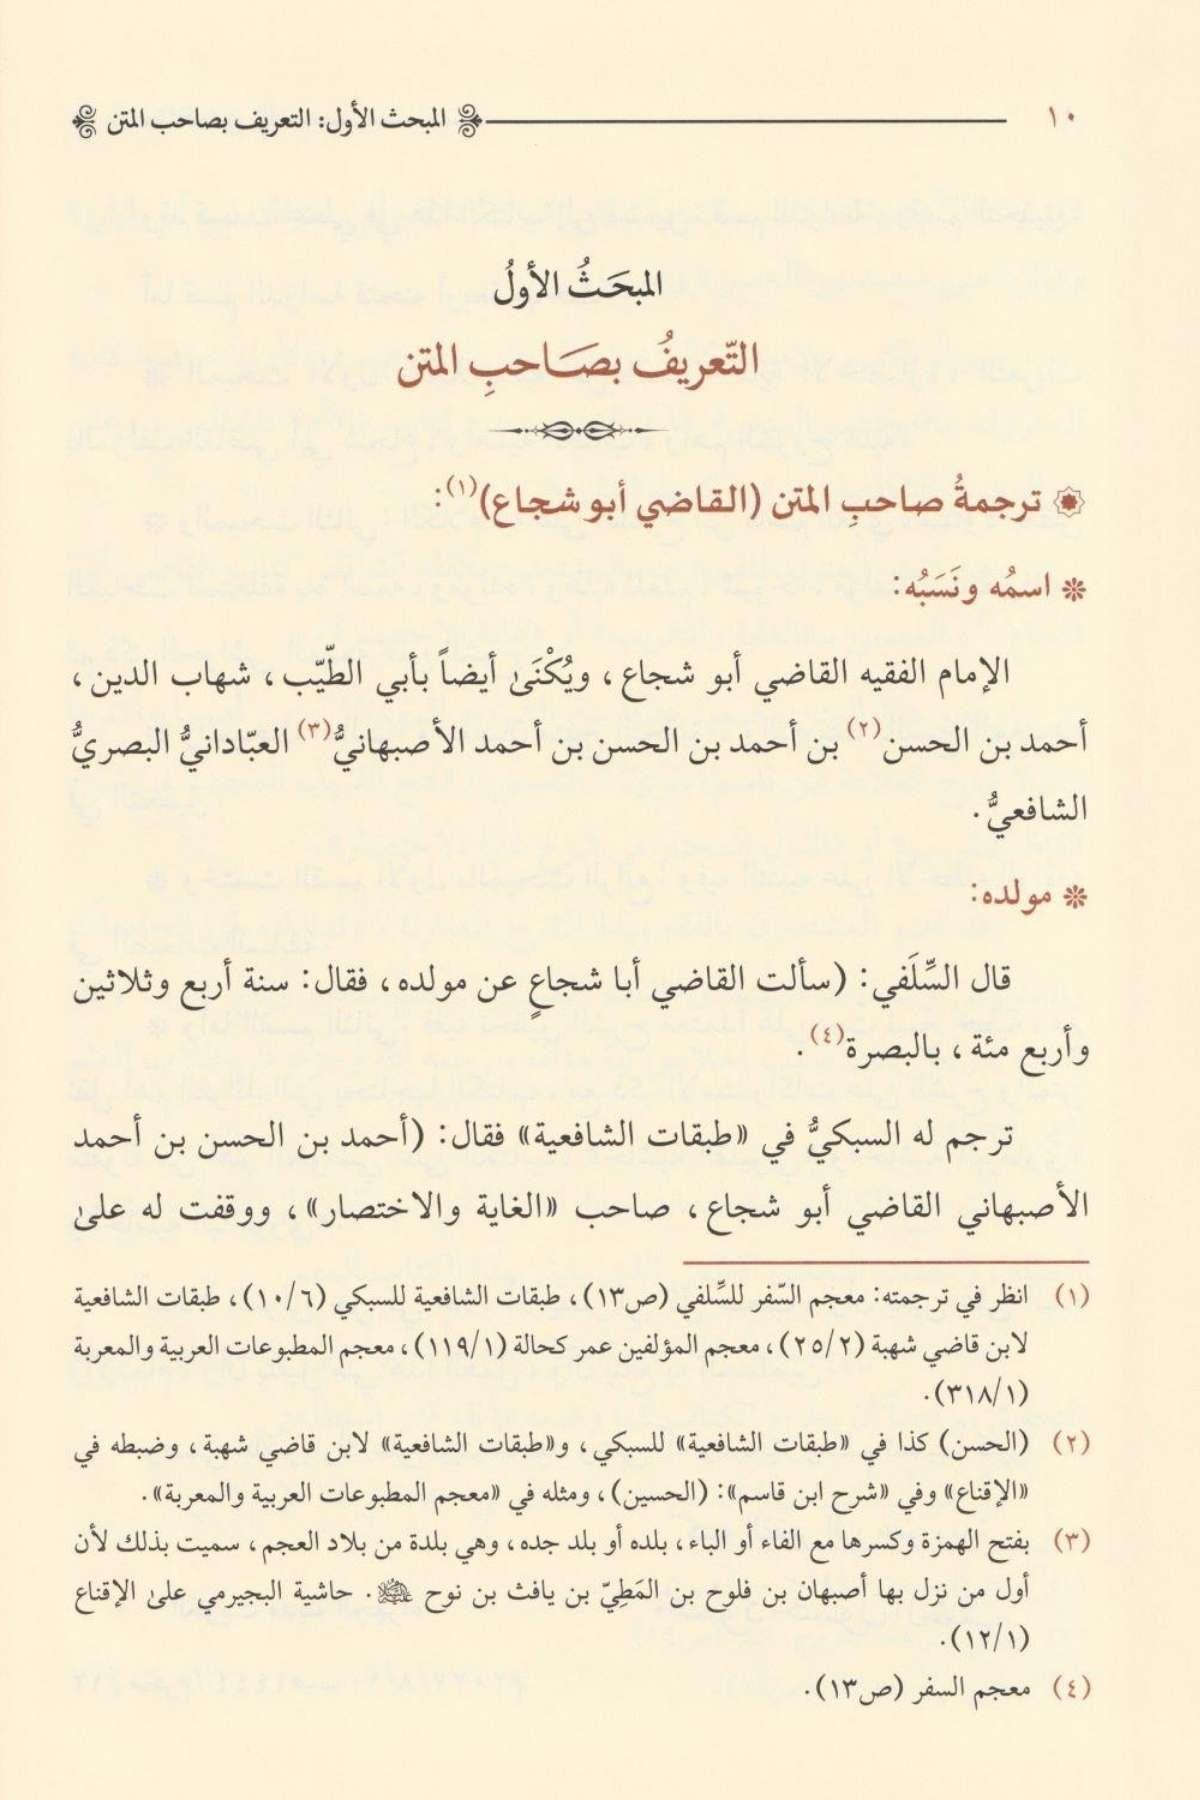 ١٠ المبحث الأول: التعريف بصاحب المتن
المبحَثُ الأولُ
التّعريفُ بصَاحبِ المتن
ترجمةُ صاحبِ المتن (القاضي أبو شجاع)(١):
اسمُه ونَسَبُه:
الإمام الفقيه القاضي أبو شجاع، ويُكْنَىٰ أيضاً بأبي الطَّيّب، شهاب الدين،
أحمد بن الحسن(٢) بن أحمد بن الحسن بن أحمد الأصبهانيُّ(٣) العبّادانيُّ البصريُّ
الشافعيُّ.
مولده:
قال السِّلَفي: (سألت القاضي أبا شجاعٍ عن مولده، فقال: سنة أربع وثلاثين
وأربع مئة، بالبصرة(٤).
ترجم له السبكيُّ في «طبقات الشافعية» فقال: (أحمد بن الحسن بن أحمد
الأصبهاني القاضي أبو شجاع، صاحب «الغاية والاختصار»، ووقفت له علىٰ
(١) انظر في ترجمته: معجم السّفر للسِّلفي (ص١٣)، طبقات الشافعية للسبكي (١٠/٦)، طبقات الشافعية
لابن قاضي شهبة (٢٥/٢)، معجم المؤلفين عمر كحالة (١١٩/١)، معجم المطبوعات العربية والمعربة
(٣١٨/١).
(٢) (الحسن) كذا في «طبقات الشافعية» للسبكي، و«طبقات الشافعية» لابن قاضي شهبة، وضبطه في
«الإقناع» وفي «شرح ابن قاسم»: (الحسين)، ومثله في «معجم المطبوعات العربية والمعربة».
(٣) بفتح الهمزة وكسرها مع الفاء أو الباء، بلده أو بلد جده، وهي بلدة من بلاد العجم، سميت بذلك لأن
أول من نزل بها أصبهان بن فلوح بن المَطِيّ بن يافث بن نوح . حاشية البجيرمي علىٰ الإقناع
(١٢/١).
(٤) معجم السفر (ص١٣).